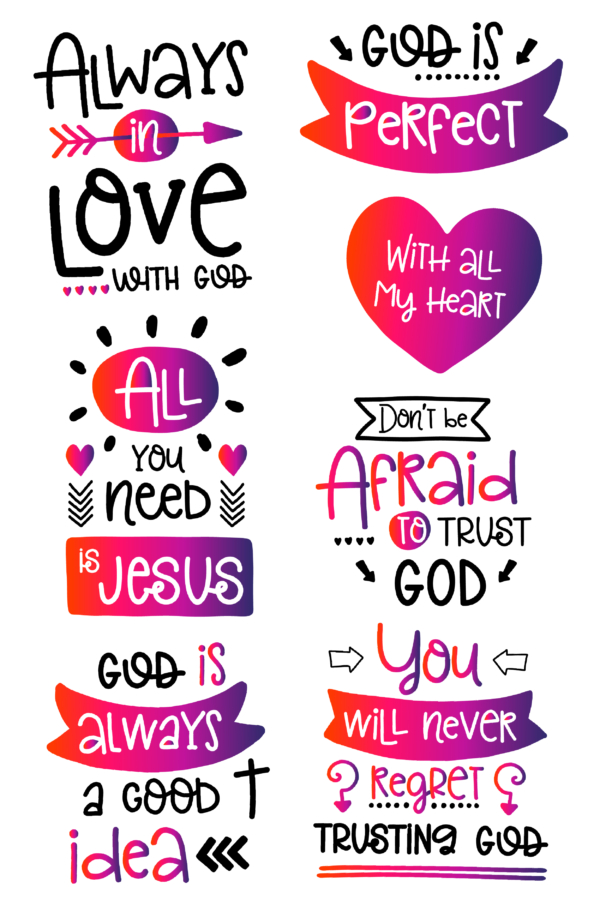 Always
in
Love
with God
All
You
need
is Jesus
God is
always
a good
idea
God is
Perfect
With all
My Heart
Don't be
Afraid
to trust
God
You
will never
Regret
Trusting God